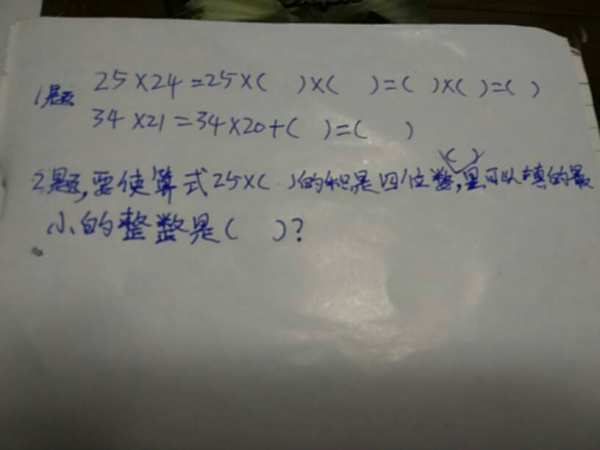 1题 25×24=25×( )×( )=( )×( )=( )
34×21=34×20+( )=( )
2题,要使算式25×( )的积是四位数,( )里可以填的最
小的整数是( )?